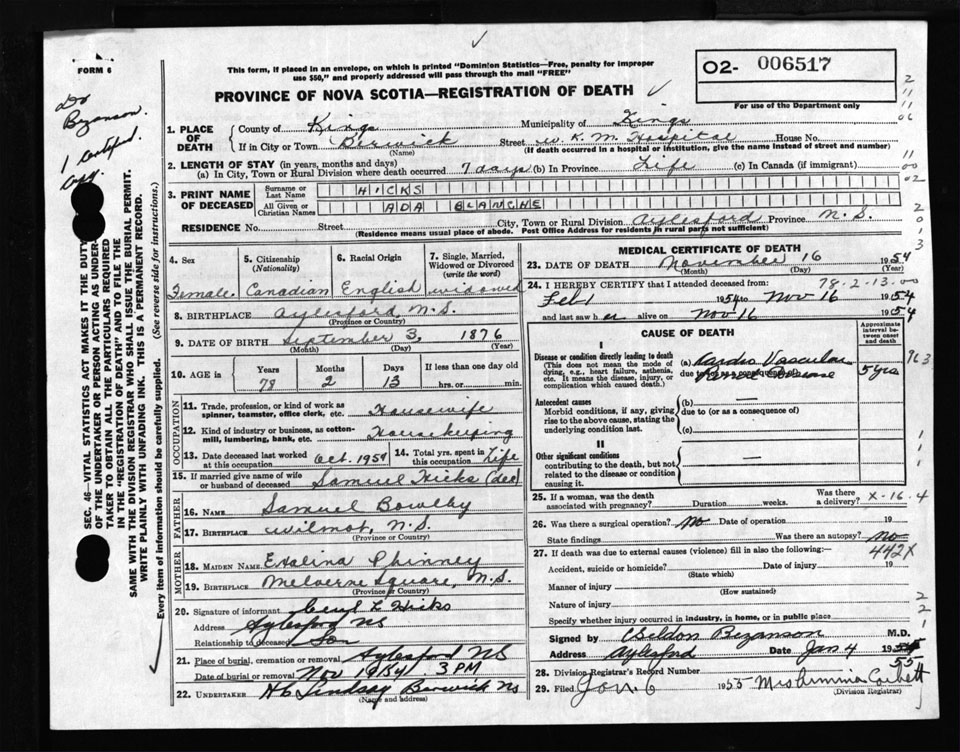 FORM 6
This form, if placed in an envelope, on which is printed "Dominion Statistics—Free, penalty for improper
use $50," and properly addressed will pass through the mail "FREE"
O2- 006517
For use of the Department only
PROVINCE OF NOVA SCOTIA—REGISTRATION OF DEATH
Dr
Bezanson.
1 Certified
Copy.
SEC. 46—VITAL STATISTICS ACT MAKES IT THE DUTY
OF THE UNDERTAKER OR PERSON ACTING AS UNDER-
TAKER TO OBTAIN ALL THE PARTICULARS REQUIRED
IN THE "REGISTRATION OF DEATH" AND TO FILE THE
SAME WITH THE DIVISION REGISTRAR WHO SHALL ISSUE THE BURIAL PERMIT.
WRITE PLAINLY WITH UNFADING INK. THIS IS A PERMANENT RECORD.
Every item of information should be carefully supplied. (See reverse side for instructions.)
1. PLACE OF DEATH County of Kings Municipality of Kings
If in City or Town Berwick Street W. K. M. Hospital House No.
(Name) (If death occurred in a hospital or institution, give the name instead of street and number)
2. LENGTH OF STAY (in years, months and days)
(a) In City, Town or Rural Division where death occurred 7 days (b) In Province Life (c) In Canada (if immigrant)
3. PRINT NAME OF DECEASED Surname or Last Name HICKS
All Given or Christian Names ADA BLANCHE
RESIDENCE No. Street City, Town or Rural Division Aylesford Province N.S.
(Residence means usual place of abode. Post Office Address for residents in rural parts not sufficient)
4. Sex Female
5. Citizenship (Nationality) Canadian
6. Racial Origin English
7. Single, Married, Widowed or Divorced (write the word) widowed
8. BIRTHPLACE Aylesford, N.S.
(Province or Country)
9. DATE OF BIRTH September 3, 1876
(Month) (Day) (Year)
10. AGE in Years 78 Months 2 Days 13 If less than one day old hrs. or min.
OCCUPATION
11. Trade, profession, or kind of work as spinner, teamster, office clerk, etc. Housewife
12. Kind of industry or business, as cotton-mill, lumbering, bank, etc. House keeping
13. Date deceased last worked at this occupation Oct. 1954
14. Total yrs. spent in this occupation Life
15. If married give name of wife or husband of deceased Samuel Hicks (dec)
FATHER
16. NAME Samuel Bowlby
17. BIRTHPLACE Wilmot, N.S.
(Province or Country)
MOTHER
18. MAIDEN NAME Phinney
19. BIRTHPLACE Melverne Square, N.S.
(Province or Country)
20. Signature of informant Cecil L Hicks
Address Aylesford NS
Relationship to deceased Son
21. Place of burial, cremation or removal Aylesford NS
Date of burial or removal Nov 19 1954 3 PM
22. UNDERTAKER Lindsay Berwick NS
(Name and address)
MEDICAL CERTIFICATE OF DEATH
23. DATE OF DEATH November 16 1954
(Month) (Day) (Year)
24. I HEREBY CERTIFY that I attended deceased from: 78.2-13.00
Feb 1 1954 to Nov 16 1954
and last saw her alive on Nov 16 1954
CAUSE OF DEATH
Approximate interval between onset and death
I
Disease or condition directly leading to death
(This does not mean the mode of dying, e.g., heart failure, asthenia, etc. It means the disease, injury, or complication which caused death.)
(a) Cardio Vascular
due to Renal Disease 5 yrs
Antecedent causes
Morbid conditions, if any, giving rise to the above cause, stating the underlying condition last.
(b) —
due to (or as a consequence of)
(c)
II
Other significant conditions
contributing to the death, but not related to the disease or condition causing it.
25. If a woman, was the death associated with pregnancy? Duration weeks. Was there a delivery? X-16.4
26. Was there a surgical operation? No Date of operation 19
State findings Was there an autopsy? No
27. If death was due to external causes (violence) fill in also the following:— 442X
Accident, suicide or homicide? Date of injury 19
(State which)
Manner of injury
(How sustained)
Nature of injury
Specify whether injury occurred in industry, in home, or in public place
Signed by Weldon Bezanson M.D.
Address Aylesford Date Jan 4 1955
28. Division Registrar's Record Number
29. Filed Jan. 6 1955 Mrs Corbett
(Division Registrar)